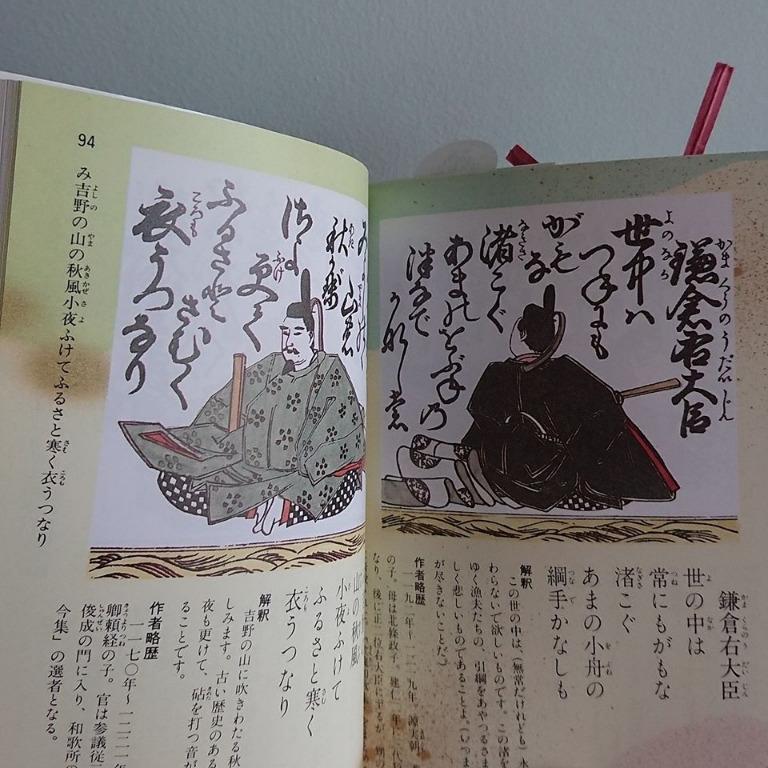 鎌倉右大臣
世中ハ
つねにも
がもな
渚こぐ
あまのをぶねの
綱手かなしも
鎌倉右大臣
世の中は
常にもがもな
渚こぐ
あまの小舟の
綱手かなしも
解釈
この世の中は、(無常だけれども)永
わらないで欲しいものです。この渚を
ゆく漁夫たちの、引綱をあやつるさま
しく悲しいものであることよ。(いつま
が尽きないことだ)
作者略歴
一一九二年〜一二一九年 源頼朝
の子、母は北條政子。建仁三年、三代
なり、後に正二位右大臣に至るが、甥の
94
み吉野の山の秋風小夜ふけてふるさと寒く衣うつなり
山の秋風
さよ
更て
ふるさと
さむく
衣うつなり
山の秋風
小夜ふけて
ふるさと寒く
衣うつなり
解釈
吉野の山に吹きわたる秋
しみます。古い歴史のある
夜も更けて、砧を打つ音が
ることです。
作者略歴
一一七〇年〜一二二一年
卿頼経の子。官は参議従三
俊成の門に入り、和歌所の
今集」の選者となる。